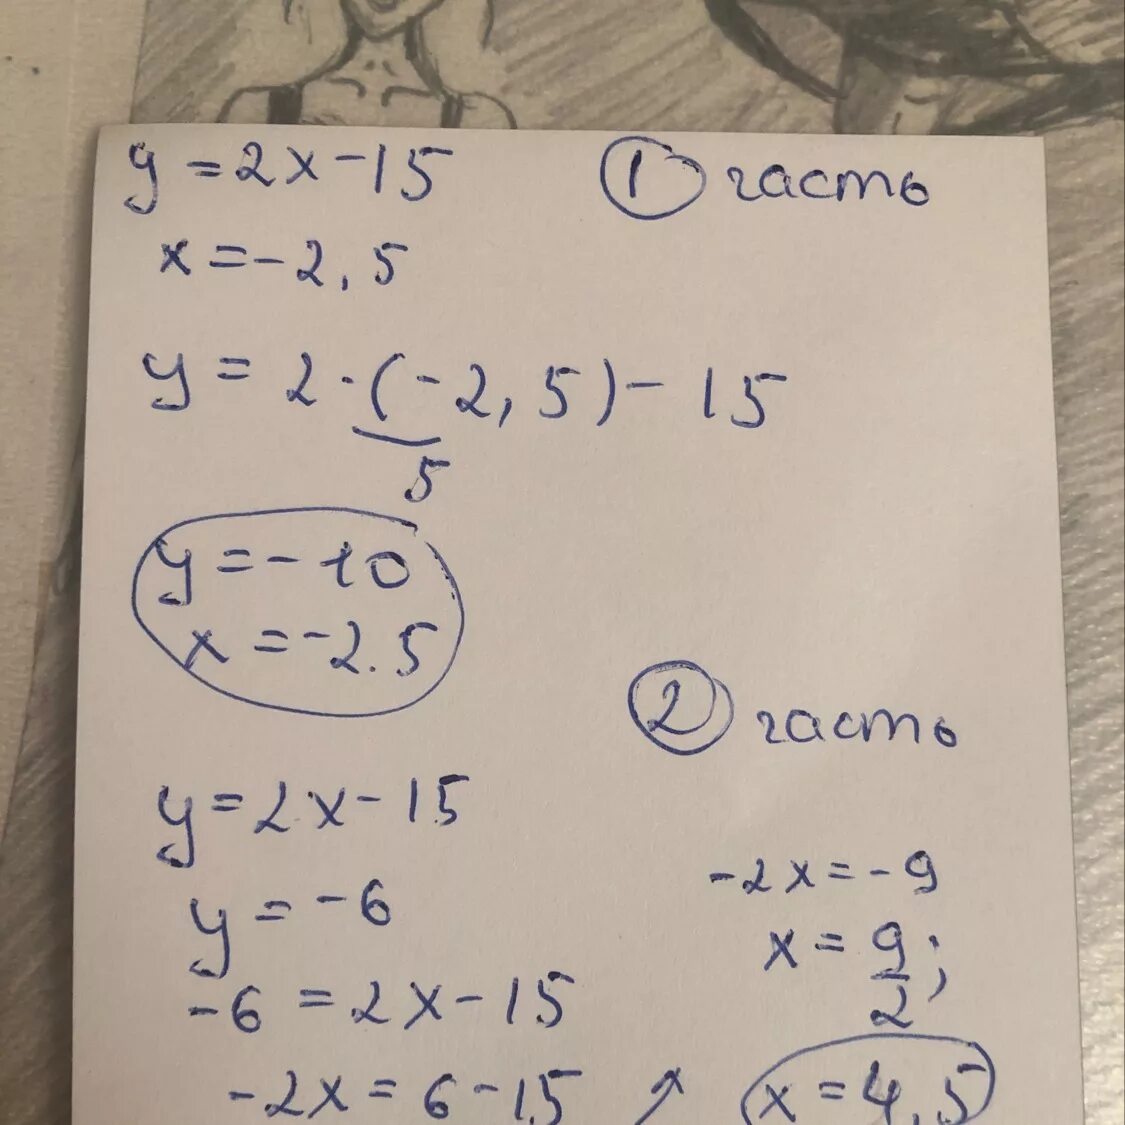 y = 2x - 15
1 часть
x = -2,5
y = 2 · (-2,5) - 15
5
y = -10
x = -2.5
2 часть
y = 2x - 15
y = -6
-6 = 2x - 15
-2x = 6 - 15
-2x = -9
x = 9/2;
x = 4,5